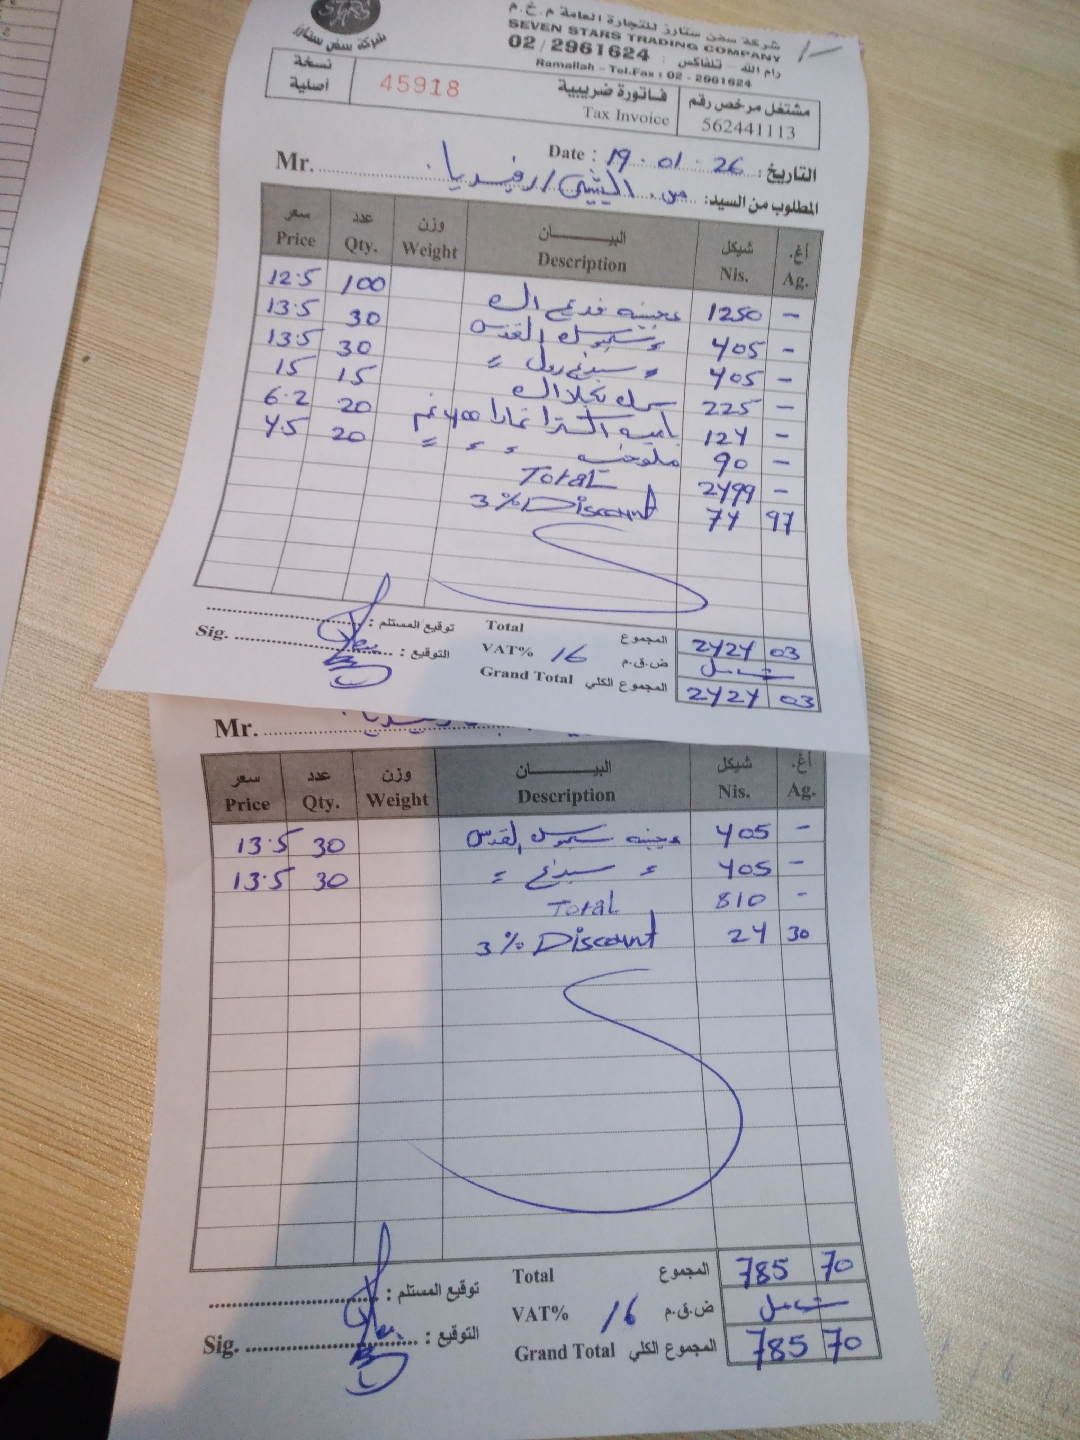 STARS
شركة سفن ستارز
شركة سفن ستارز للتجارة العامة م.خ.م
SEVEN STARS TRADING COMPANY
02 / 2961624 رام الله - تلفاكس :
Ramallah - Tel.Fax : 02 - 2961624
نسخة أصلية
45918
فاتورة ضريبية
Tax Invoice
مشتغل مرخص رقم
562441113
Date : 19 . 01 . 26 التاريخ :
Mr. رفيديا / المطلوب من السيد:
سعر عدد وزن البيـــــان شيكل أغ.
Price Qty. Weight Description Nis. Ag.
12.5 100 1250 -
13.5 30 القدس 405 -
13.5 30 رول " 405 -
15 15 سمك 225 -
6.2 20 باميه اكسترا 400 غم 124 -
4.5 20 ملوخيه " " " 90 -
Total 2499 -
3% Discount 74 97
توقيع المستلم : Total المجموع 2424 03
Sig. التوقيع : VAT% 16 ض.ق.م
Grand Total المجموع الكلي 2424 03
Mr. رفيديا
سعر عدد وزن البيـــــان شيكل أغ.
Price Qty. Weight Description Nis. Ag.
13.5 30 القدس 405 -
13.5 30 " " 405 -
Total 810 -
3% Discount 24 30
توقيع المستلم : Total المجموع 785 70
Sig. التوقيع : VAT% 16 ض.ق.م
Grand Total المجموع الكلي 785 70